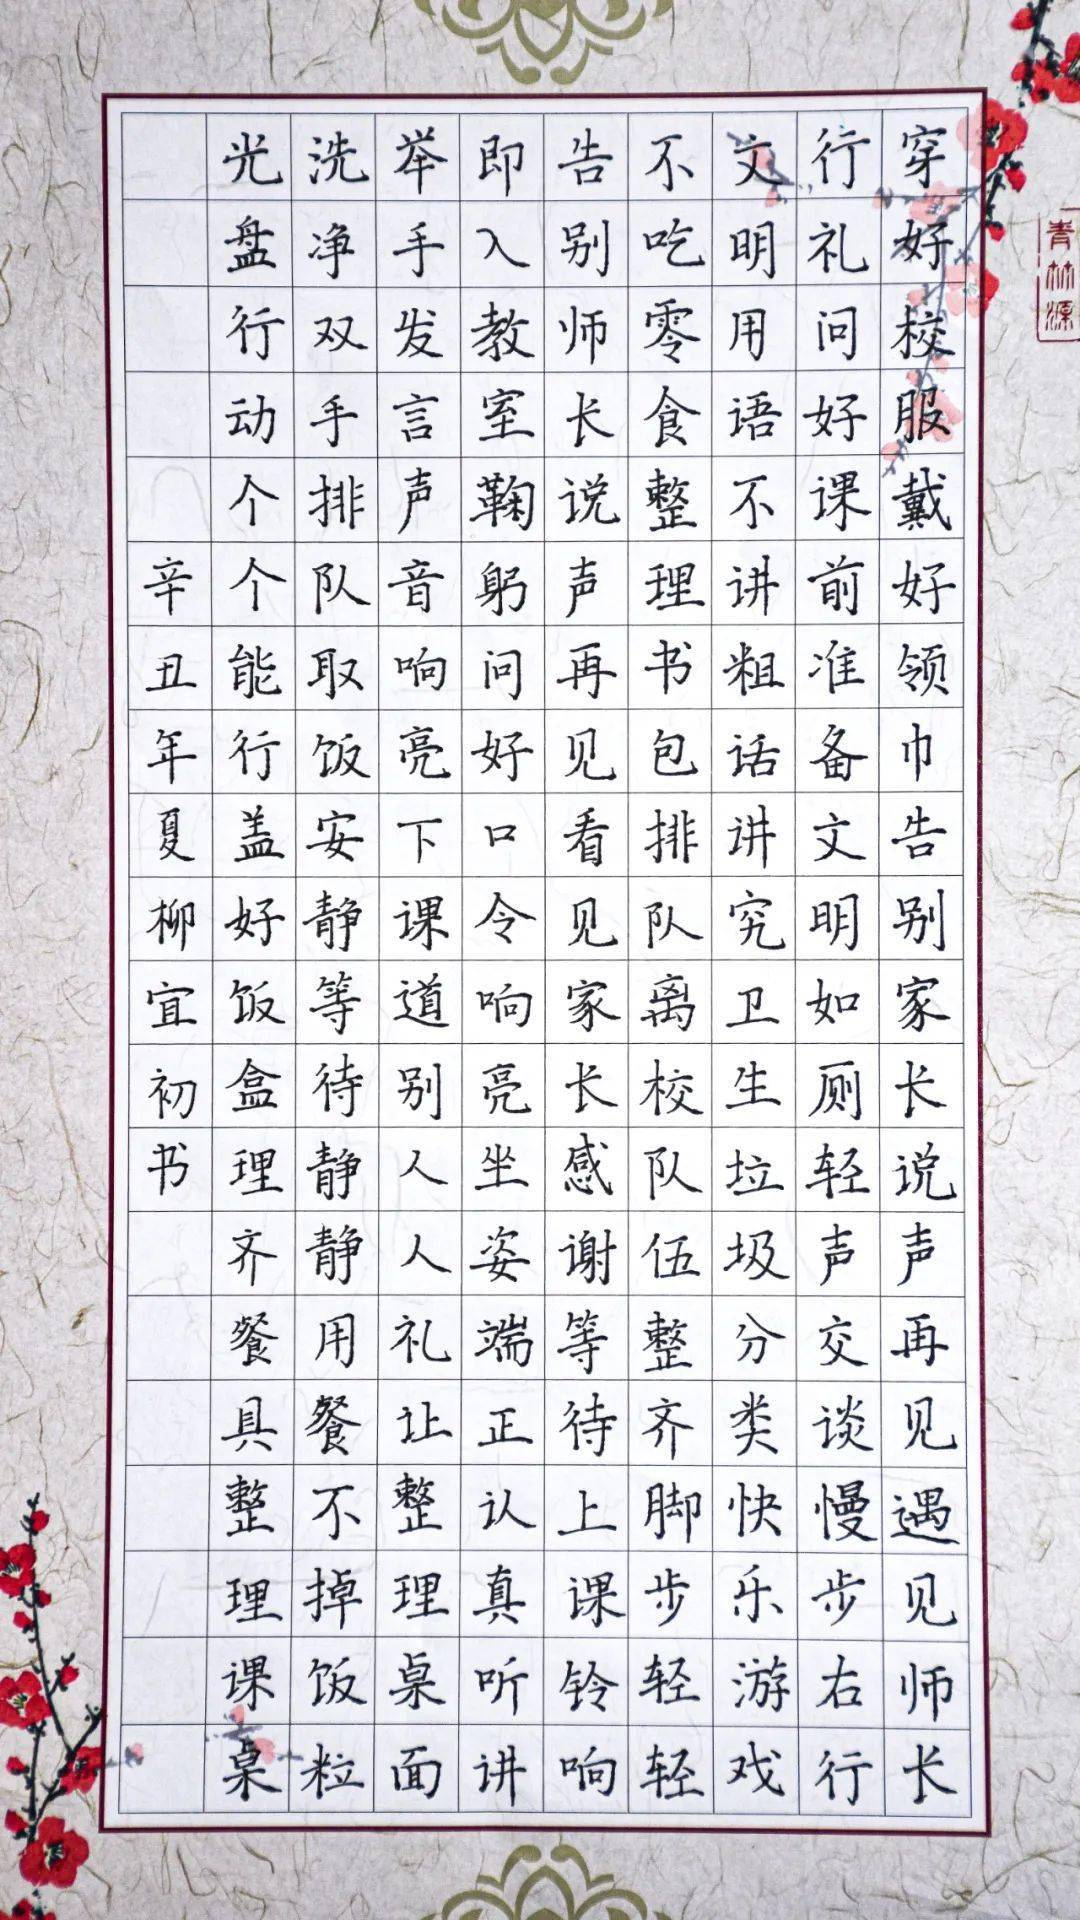 穿好校服戴好领巾告别家长说声再见遇见师长
行礼问好课前准备文明如厕轻声交谈慢步右行
文明用语不讲粗话讲究卫生垃圾分类快乐游戏
不吃零食整理书包排队离校队伍整齐脚步轻轻
告别师长说声再见看见家长感谢等待上课铃响
即入教室鞠躬问好口令响亮坐姿端正认真听讲
举手发言声音响亮下课道别人人礼让整理桌面
洗净双手排队取饭安静等待静静用餐不掉饭粒
光盘行动个个能行盖好饭盒理齐餐具整理课桌
辛丑年夏柳宜初书
青林源